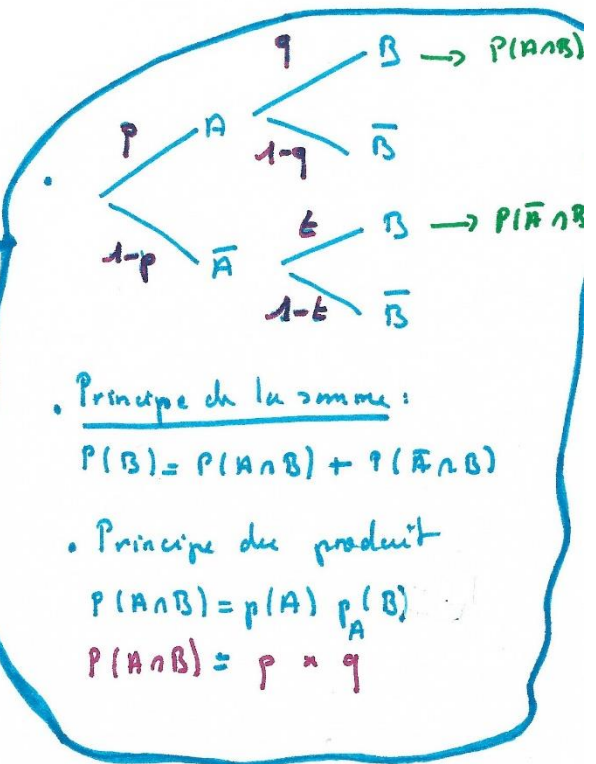 q B → P(A∩B)
p A
1-q B̅
t B → P(A̅∩B
1-p A̅
1-t B̅
. Principe de la somme :
P(B) = P(A∩B) + P(A̅∩B)
. Principe du produit
P(A∩B) = p(A) p_A(B)
P(A∩B) = p × q